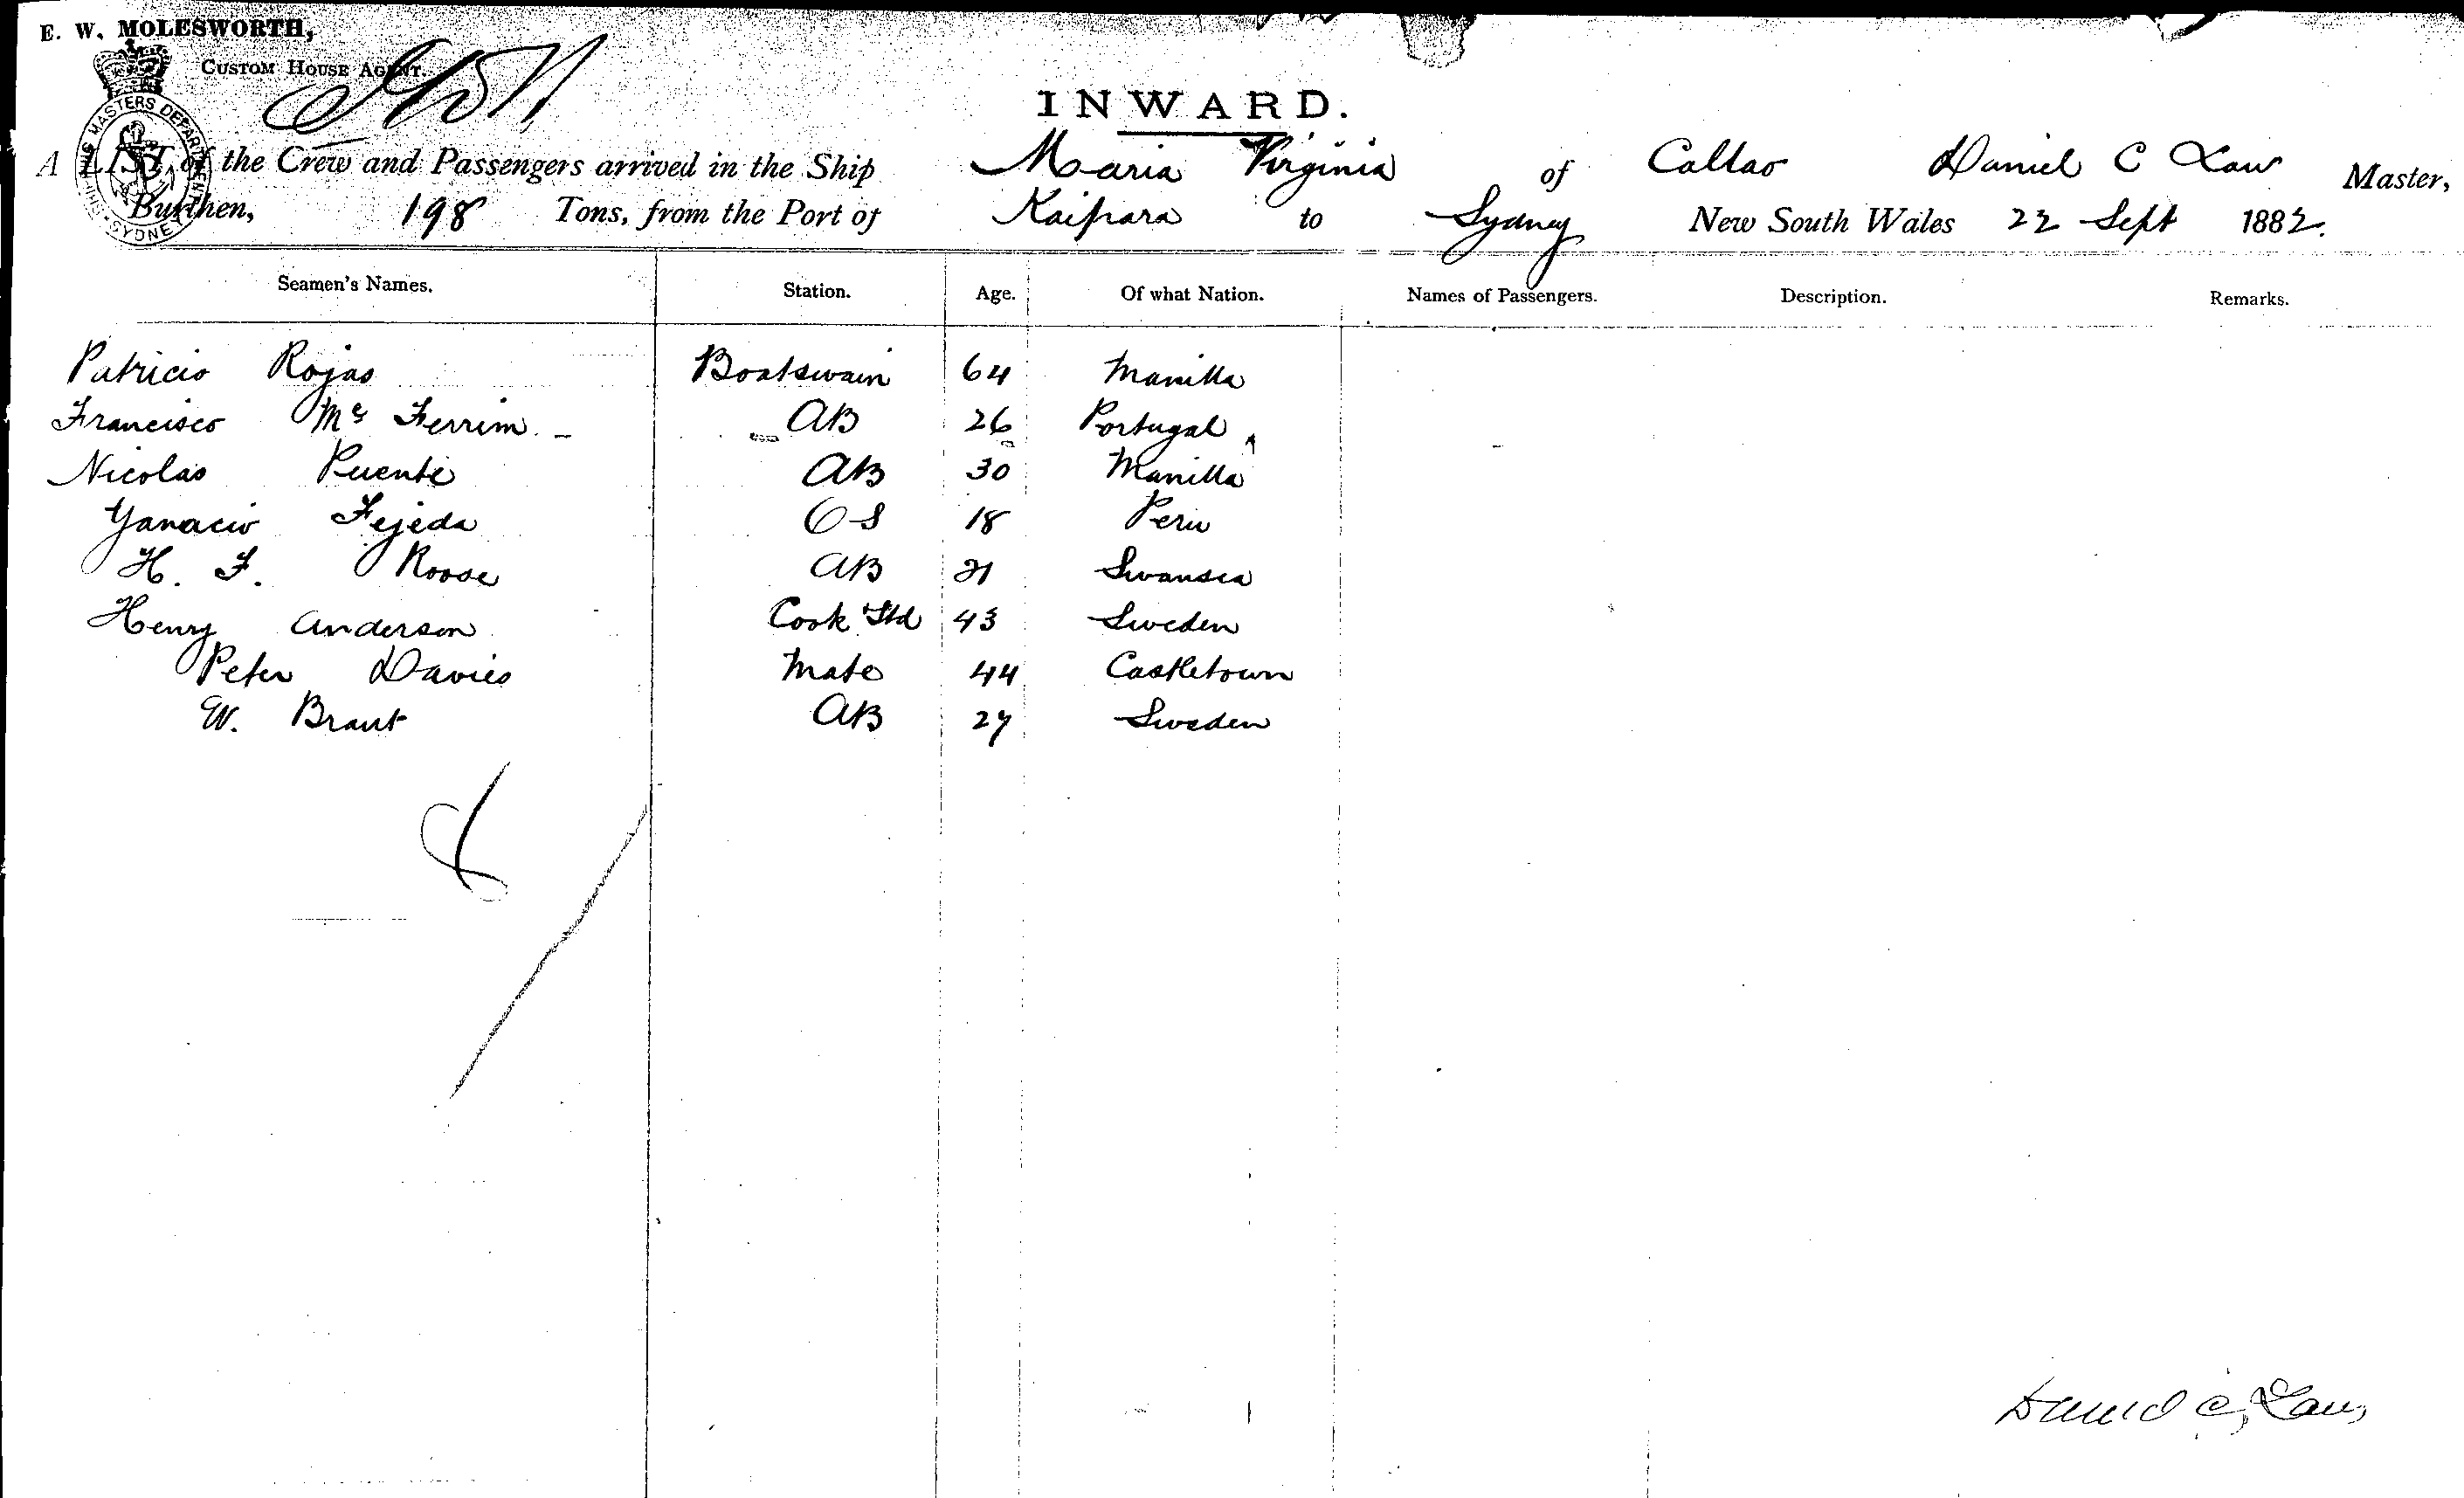 E. W. MOLESWORTH,
CUSTOM HOUSE AGENT.
SHIPPING MASTERS DEPARTMENT SYDNEY
INWARD.
A LIST of the Crew and Passengers arrived in the Ship Maria Virginia of Callao Daniel C Law Master,
Burthen, 198 Tons, from the Port of Kaipara to Sydney New South Wales 22 Sept 1882.
Seamen's Names. Station. Age. Of what Nation. Names of Passengers. Description. Remarks.
Patricio Rojas Boatswain 64 Manilla
Francisco Mc Ferrim AB 26 Portugal
Nicolas Puente AB 30 Manilla
Yanacio Fejeda OS 18 Peru
H. F. Roose AB 21 Swansea
Henry Anderson Cook Std 43 Sweden
Peter Davies Mate 44 Castletown
W. Brant AB 27 Sweden
8
Daniel C, Law,